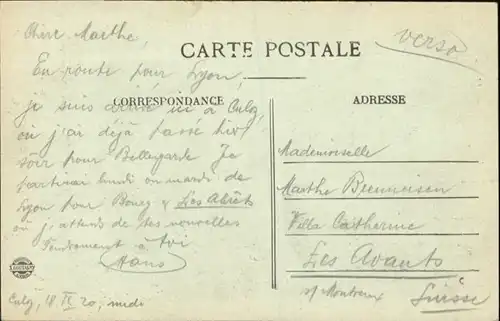 Chère Marthe,
verso
CARTE POSTALE
En route pour Lyon,
je suis arrivé ici à Culoz
CORRESPONDANCE
ADRESSE
où j'ai déjà passé hier
soir pour Bellegarde Je
partirai lundi ou mardi de
Lyon pour Bourg & Les Abrets
où j'attends de tes nouvelles
Tendrement à toi
Hans
Culoz, 18 IX 20, midi
Mademoiselle
Marthe
Villa Catherine
Les Avants
s/ Montreux
Suisse